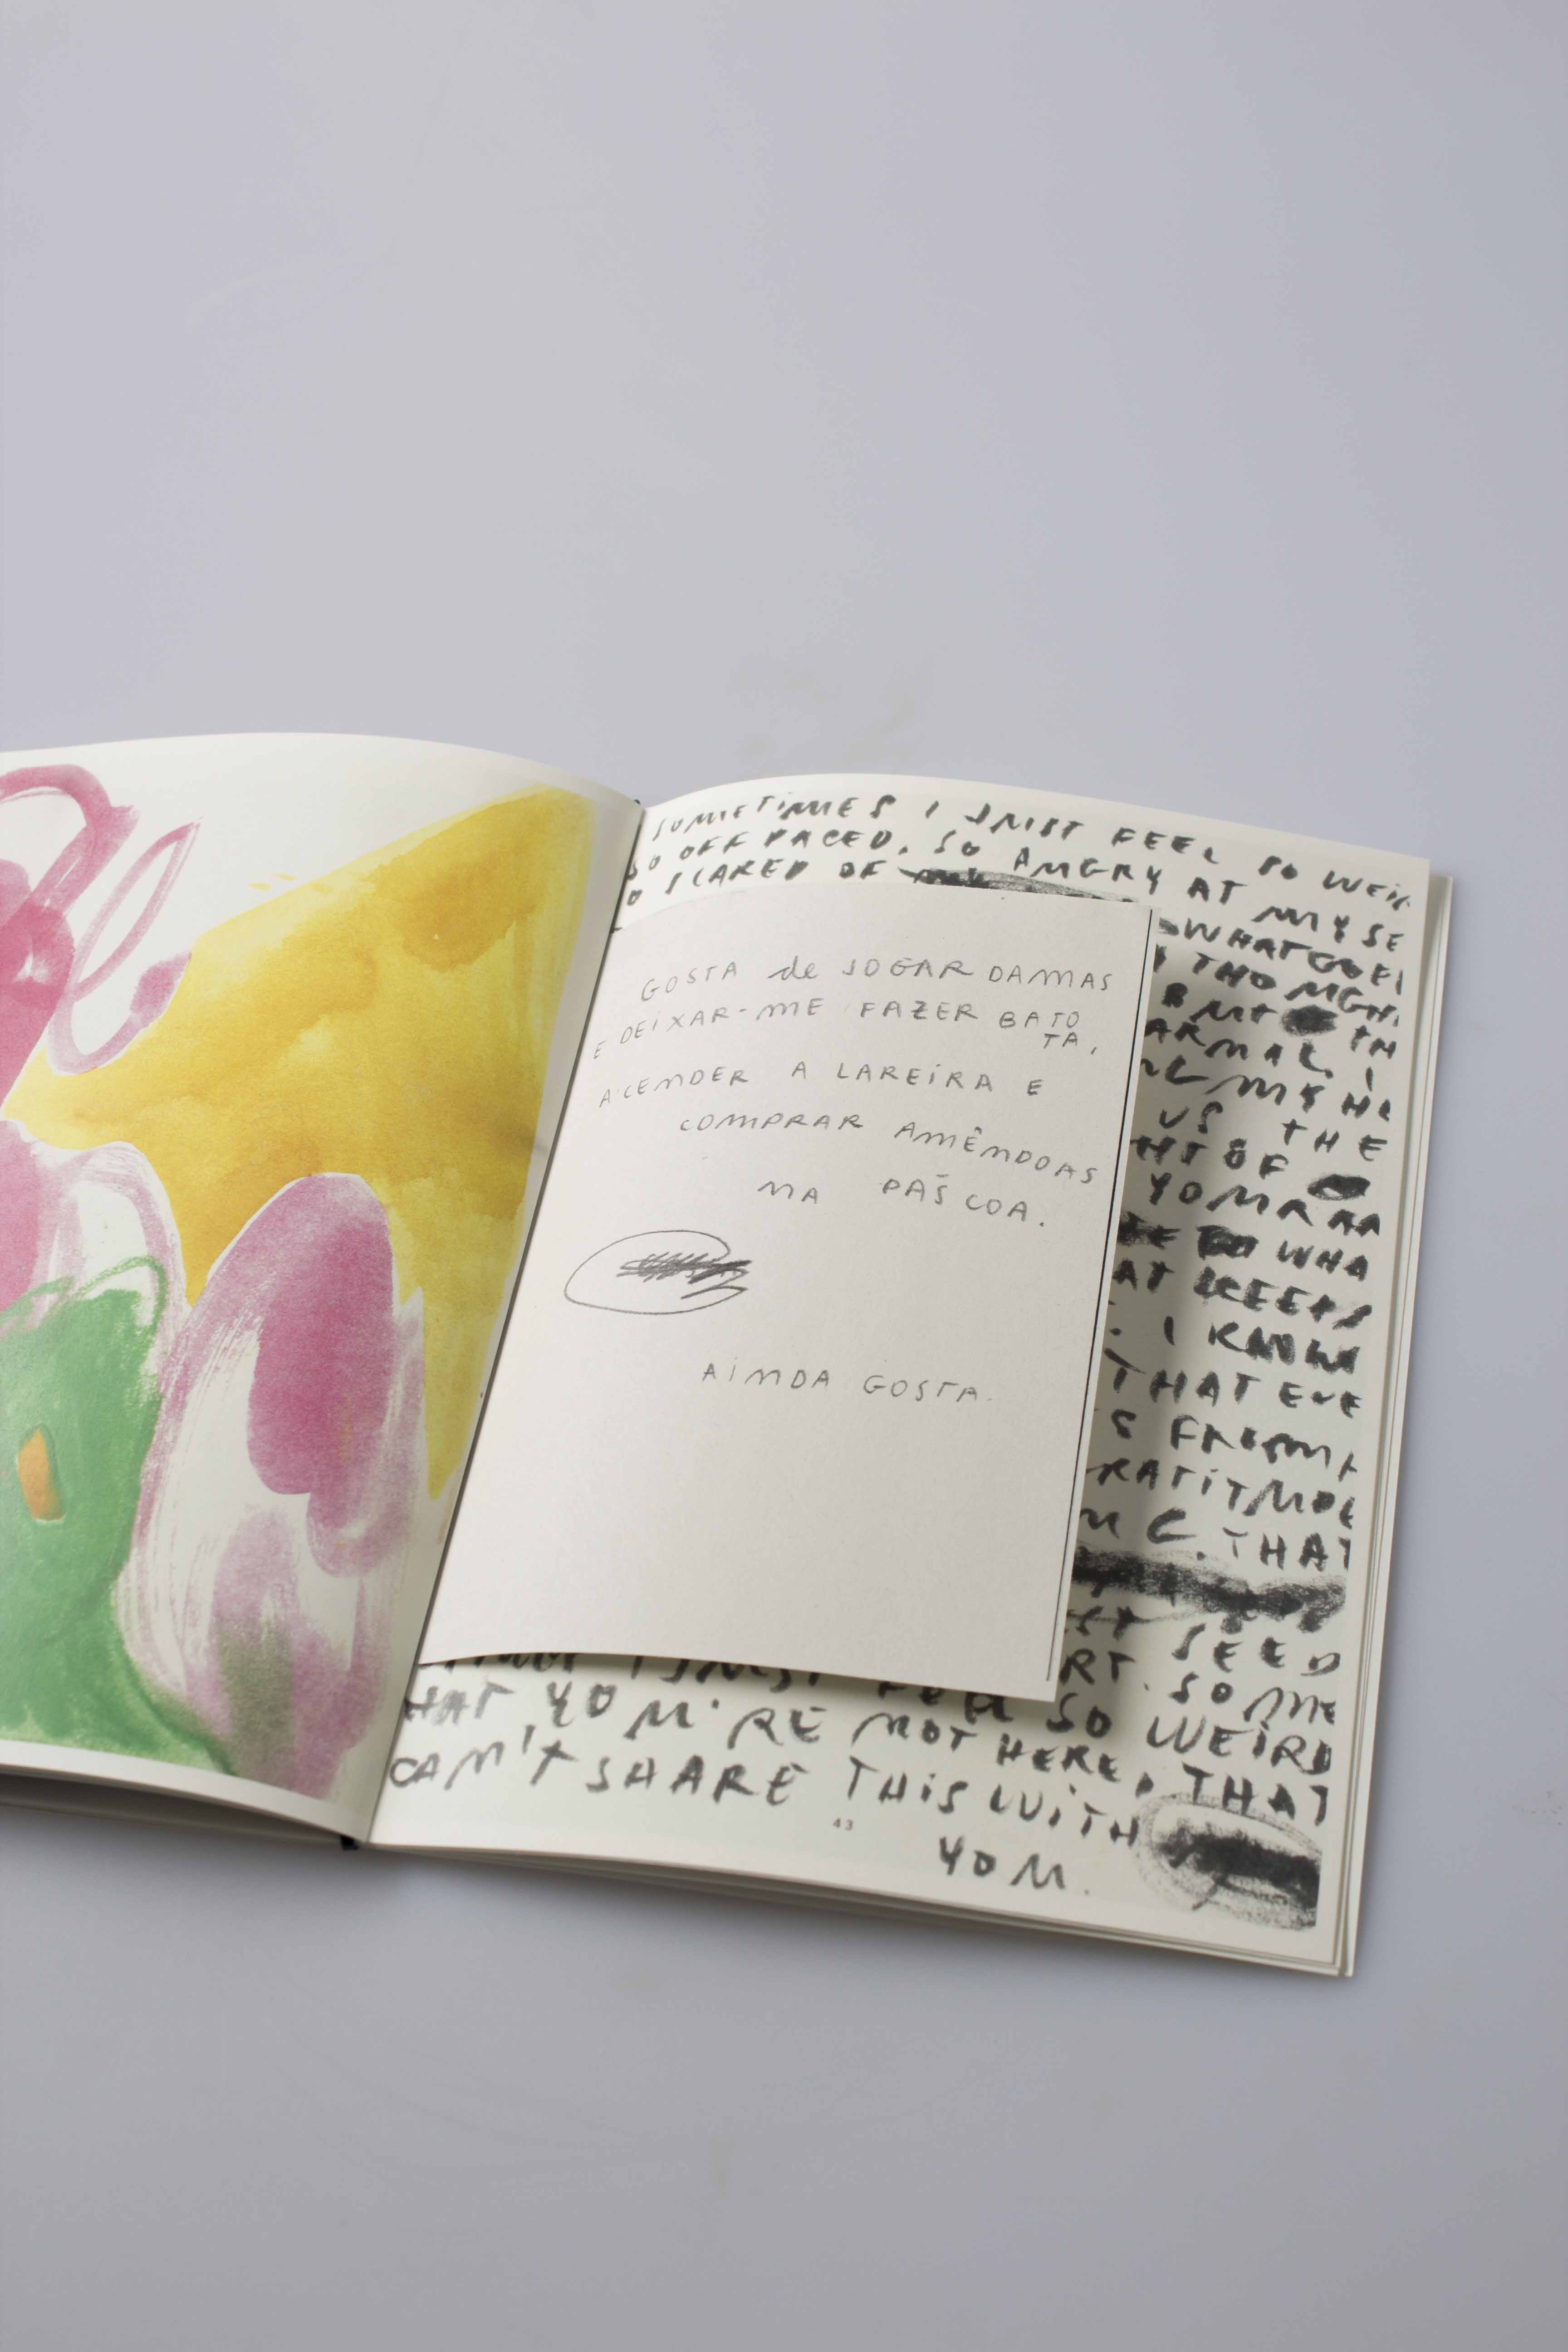 SOMETIMES I JUST FEEL SO WEIR
SO OFF PACED. SO ANGRY AT MYSE
O SCARED OF WHAT GOES
THOUGH
BUT TH
MY HE
US THE
NT OF
YOUR
WHA
AT KEEPS
. I KNOW
THAT EVE
S FROM
RATITUDE
THAT
SEED
RT. SOME
I JUST FEEL SO WEIRD
HAT YOU'RE NOT HERE, THAT
CAN'T SHARE THIS WITH
YOU.
43
GOSTA de JOGAR DAMAS
E DEIXAR-ME FAZER BATO
TA,
ACENDER A LAREIRA E
COMPRAR AMÊNDOAS
NA PÁSCOA.
AINDA GOSTA.